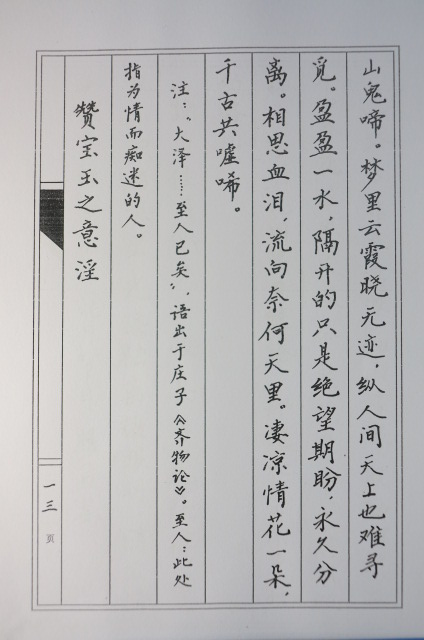 山鬼啼。梦里云霞晓无迹，纵人间天上也难寻
觅。盈盈一水，隔开的只是绝望期盼，永久分
离。相思血泪，流向奈何天里。凄凉情花一朵，
千古共嘘唏。
注：“大泽……至人已矣”，语出于庄子《齐物论》。至人：此处
指为情而痴迷的人。
赞宝玉之意淫
一三页